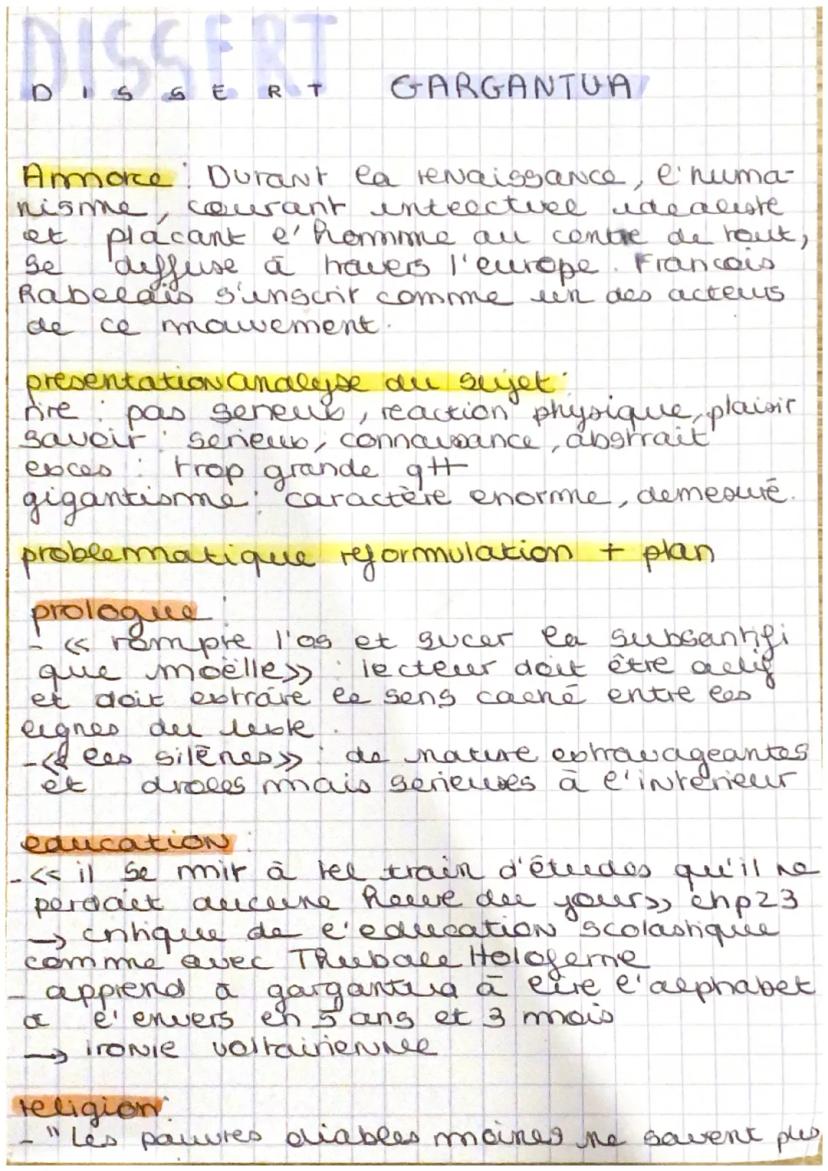 DISSERT
DISSERT GARGANTUA
Annorce : Durant la renaissance, l'huma-
nisme, courant intectuel idealiste
et plaçant l'homme au centre de tout,
se diffuse à travers l'europe. Francois
Rabelais s'inscrit comme un des acteurs
de ce mouvement.
presentation analyse du sujet :
rire : pas serieux, reaction physique, plaisir
savoir : serieux, connaissance, abstrait
exces : trop grande qtt
gigantisme : caractère enorme, demesuré.
problematique reformulation + plan
prologue :
- << rompre l'os et sucer la subsantifi
que moëlle >> : lecteur doit être actif
et doit extraire le sens caché entre les
lignes du texte.
- << les silènes >> : de nature extravageantes
et droles mais serieuses à l'intérieur
education :
- << il se mit à tel train d'études qu'il ne
perdait aucune heure du jour >> chp 23
→ critique de l'education scolastique
comme avec Thubale Holoferne
- apprend a gargantua à lire l'alphabet
a l'envers en 5 ans et 3 mois
→ ironie voltairienne
religion :
- "Les pauvres diables moines ne savent plus